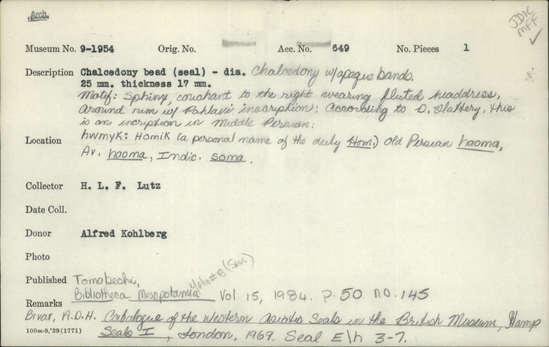 JDK
MFF
Museum No. 9-1954 Orig. No. Acc. No. 649 No. Pieces 1
Description Chalcedony bead (seal) - dia. Chalcedony w/opaque bands.
25 mm. thickness 17 mm.
Motif: Sphinx, couchant to the right wearing fluted headdress.
Around rim w/ Pahlavi inscription; According to D. Slattery, this
is an incription in Middle Persian:
hwmyK: HomiK (a personal name of the deity Hom,) Old Persian haoma,
Location
Av. haoma, Indic. soma.
Collector H. L. F. Lutz
Date Coll.
Donor Alfred Kohlberg
Photo
Published
Bibliotheca Mesopotamia Vol. 15, 1984. p. 50 no. 145
Remarks Bivar, A.D.H. Catalogue of the Western Asiatic Seals in the British Museum, Stamp
Seals I, London, 1969. Seal E\h 3-7.
100m-9,'39(1771)